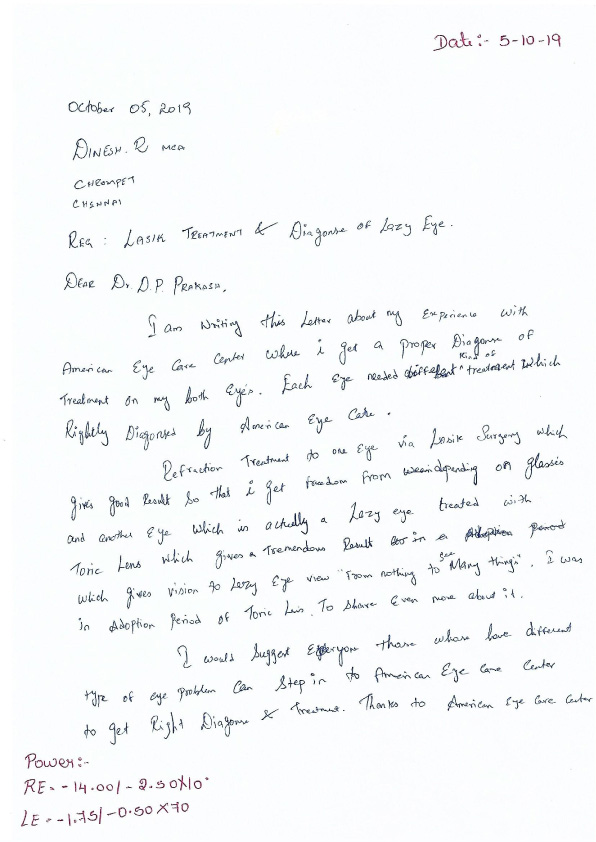 Date:- 5-10-19
October 05, 2019
DINESH. R MCA
CHROMPET
CHENNAI
REG : LASIK TREATMENT & Diagonse of Lazy Eye.
DEAR Dr. D.P. PRAKASH,
I am writing this Letter about my Experience with
American Eye Care Center where i get a proper Diagonse of
Treatment on my both Eye's. Each Eye needed different kind of treatment which
Rightly Diagonsed by American Eye Care.
Refraction Treatment to one Eye via Lasik Surgery which
gives good Result so that i get freedom from depending on glasses
and another Eye which is actually a Lazy eye treated with
Toric Lens which gives a Tremendous Result in a Adoption period
which gives vision to Lazy Eye view "From nothing to see Many things". I was
in Adoption Period of Toric Lens. To Share Even more about it.
I would Suggest Everyone those whose have different
type of eye problem Can Step in to American Eye Care Center
to get Right Diagonse & Treatment. Thanks to American Eye Care Center
Power:-
RE - -14.00/-2.50X10°
LE - -1.75/-0.50X70